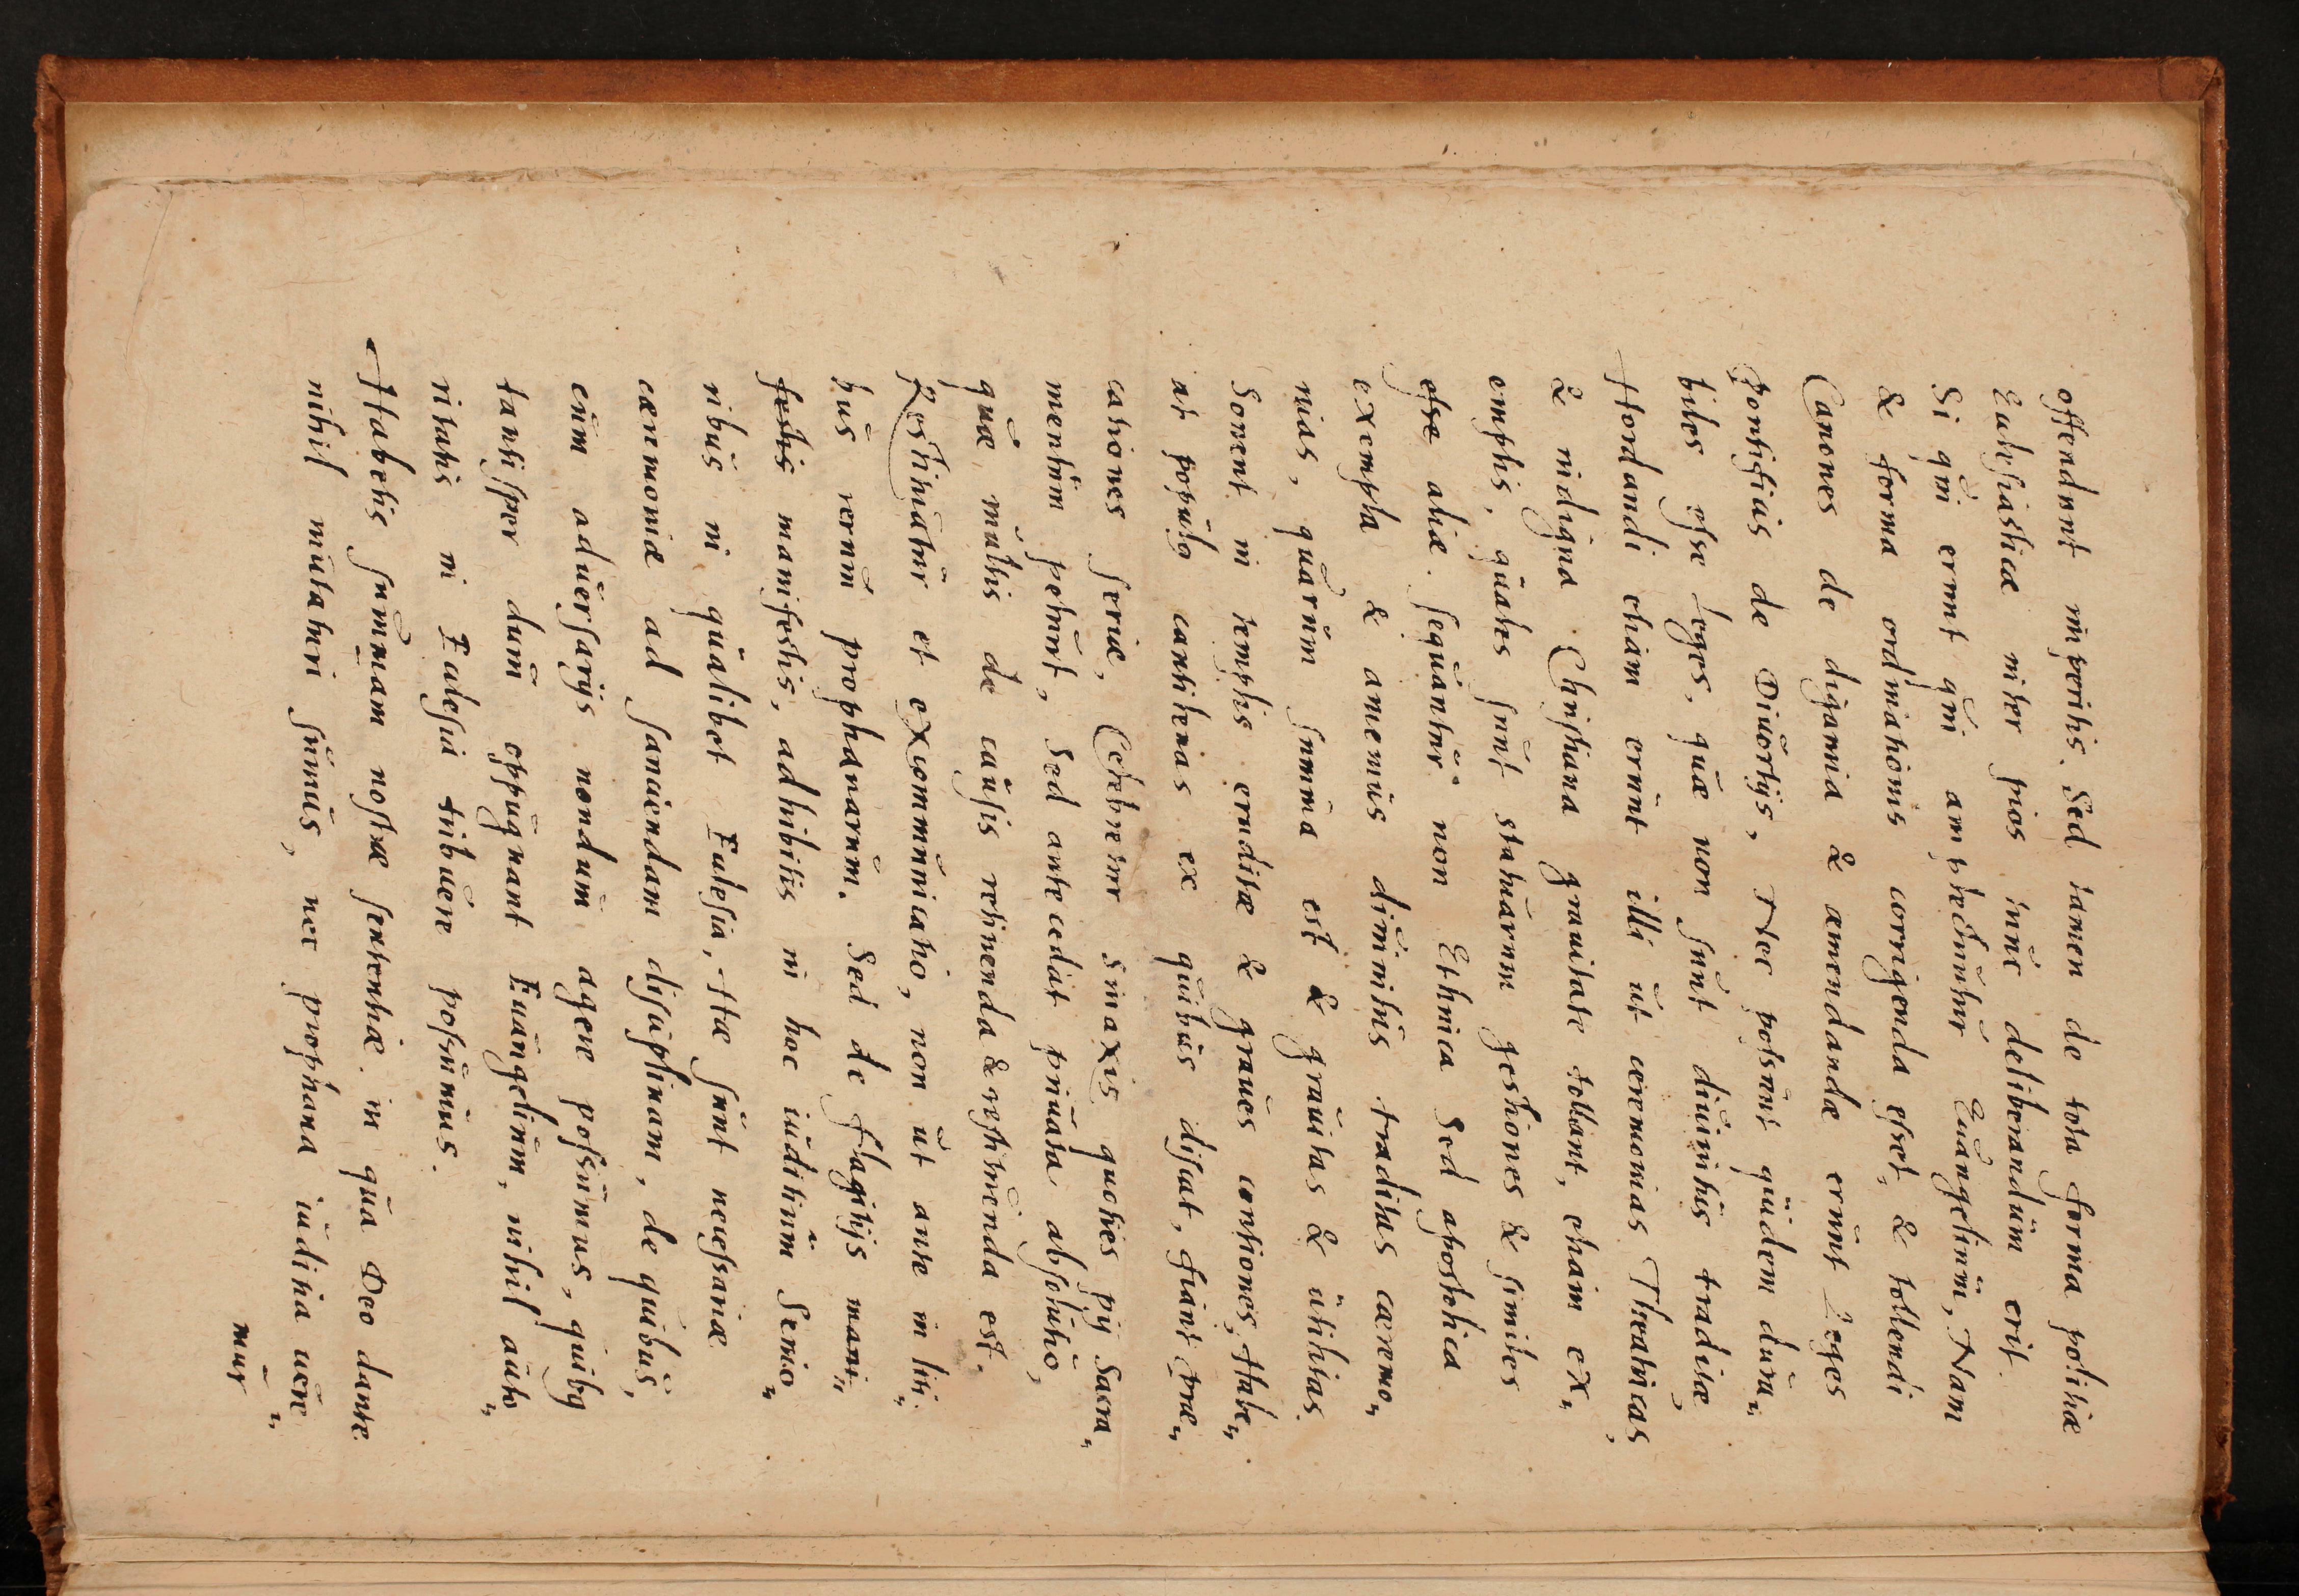 offendunt imperitis. Sed tamen de tota forma politiæ
Ecclesiasticæ inter pios inde deliberandum erit.
Si qui erunt qui amplectuntur Euangelium, Nam
& forma ordinationis corrigenda esset, & tollendi
Canones de digamia & æmendandæ erunt Leges
Pontificiis de Diuortijs, Nec possunt quidem dura„
biles esse leges, quæ non sunt diuinitus traditæ,
Hortandi etiam erunt illi ut ceremonias Theatricas,
& indigna Christiana grauitate tollant, etiam ex„
emptis, quales sunt statuarum gestiones & similes
esse aliæ. sequantur non Ethnica sed apostolica
exempla & amemus diuinitus traditas cæremo„
nias, quarum summa est & grauitas & utilitas.
Sonent in templis eruditæ & graues contiones, Habe„
at populo cantilenas ex quibus discat, fiant præ„
cationes seriæ, Celebretur sinaxis quoties pij Sacra„
mentum petunt, sed antecedat priuata absolutio,
quæ multis de causis retinenda & restituenda est.
Restituatur et excommunicatio, non ut ante in liti„
bus rerum prophanarum. Sed de flagitijs mani„
festis manifestis, adhibitis in hoc iuditium Senio„
ribus in qualibet Eclesia, Hæ sunt necessariæ
cæremoniæ ad sanciendam disciplinam, de quibus,
cum aduersarijs nondum agere possumus, quibus
tantisper dum oppugnant Euangelium, nihil auto„
ritatis in Eclesia tribuere possumus.
Habetis summam nostræ sententiæ. in qua Deo dante
nihil mutaturi sumus, nec prophana iuditia uere„
mur